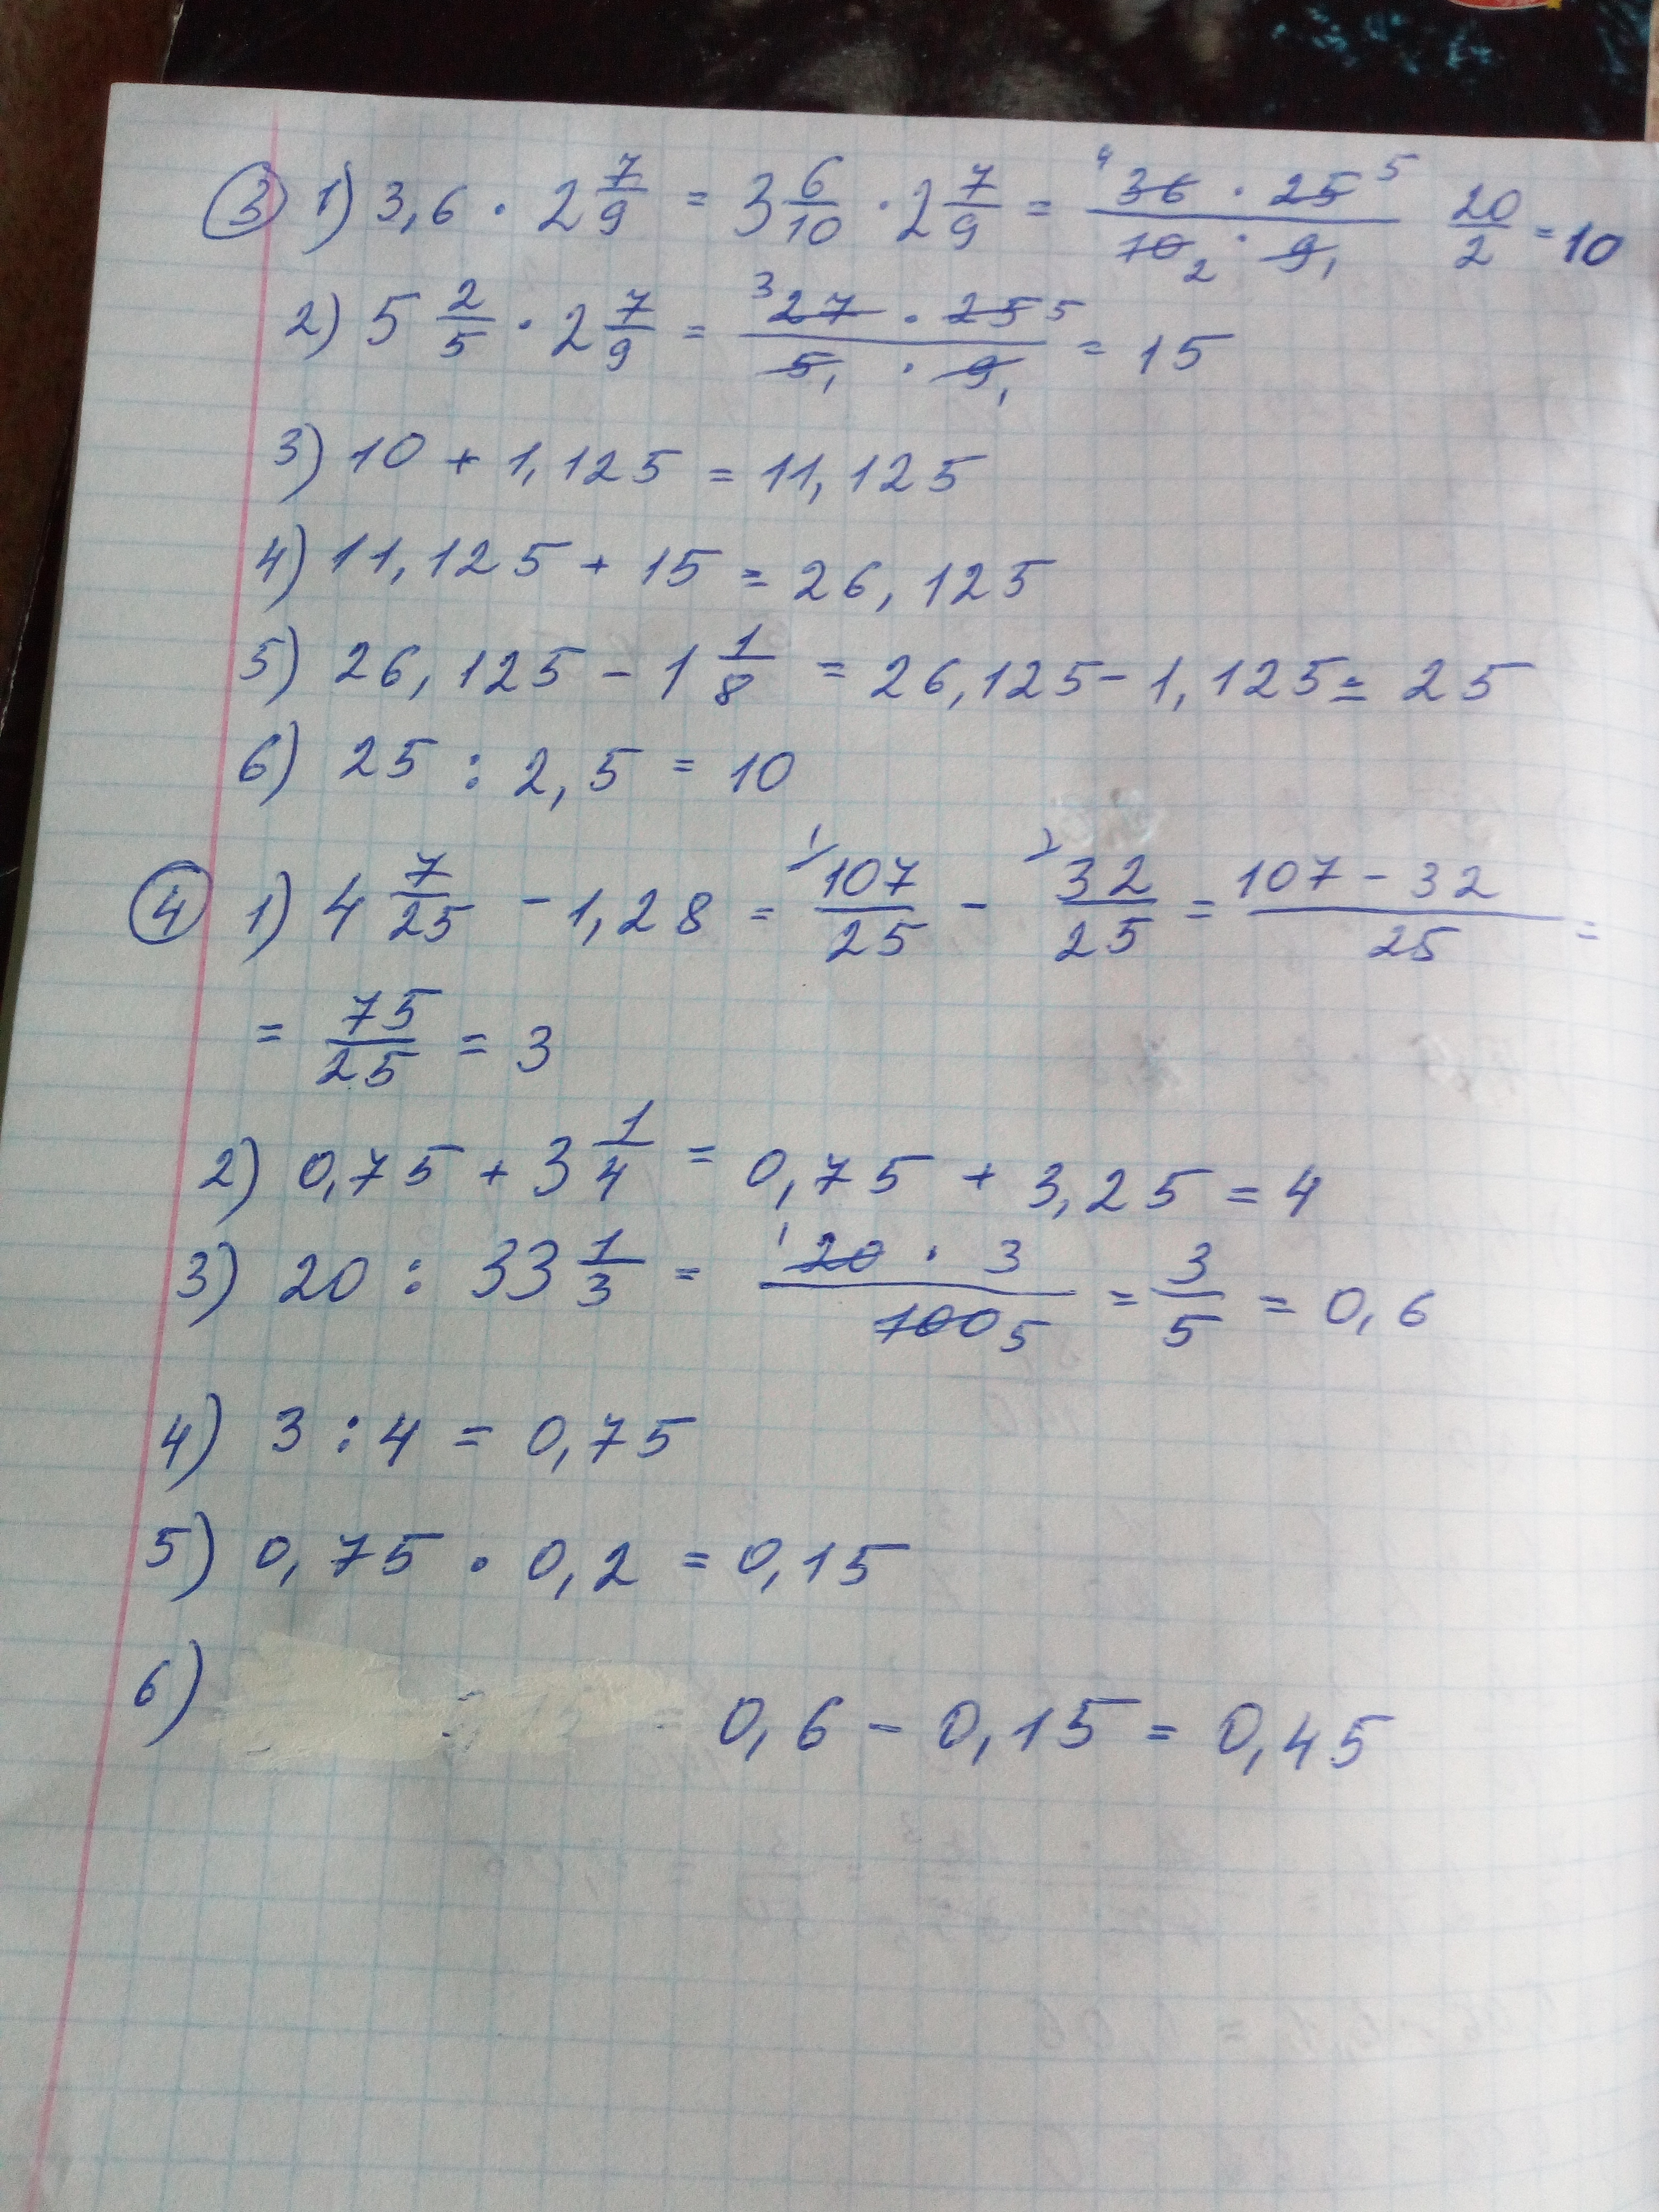 ③ 1) 3,6 · 2 7/9 = 3 6/10 · 2 7/9 = ⁴36 · 25⁵ / 10₂ · 9₁ 20/2 = 10
2) 5 2/5 · 2 7/9 = ³27 · 25⁵ / 5₁ · 9₁ = 15
3) 10 + 1,125 = 11,125
4) 11,125 + 15 = 26,125
5) 26,125 - 1 1/8 = 26,125 - 1,125 = 25
6) 25 : 2,5 = 10
④ 1) 4 7/25 - 1,28 = ¹⁾107/25 - ¹⁾32/25 = 107 - 32 / 25 =
= 75/25 = 3
2) 0,75 + 3 1/4 = 0,75 + 3,25 = 4
3) 20 : 33 1/3 = ¹20 · 3 / 100₅ = 3/5 = 0,6
4) 3 : 4 = 0,75
5) 0,75 · 0,2 = 0,15
6) 0,6 - 0,15 = 0,45